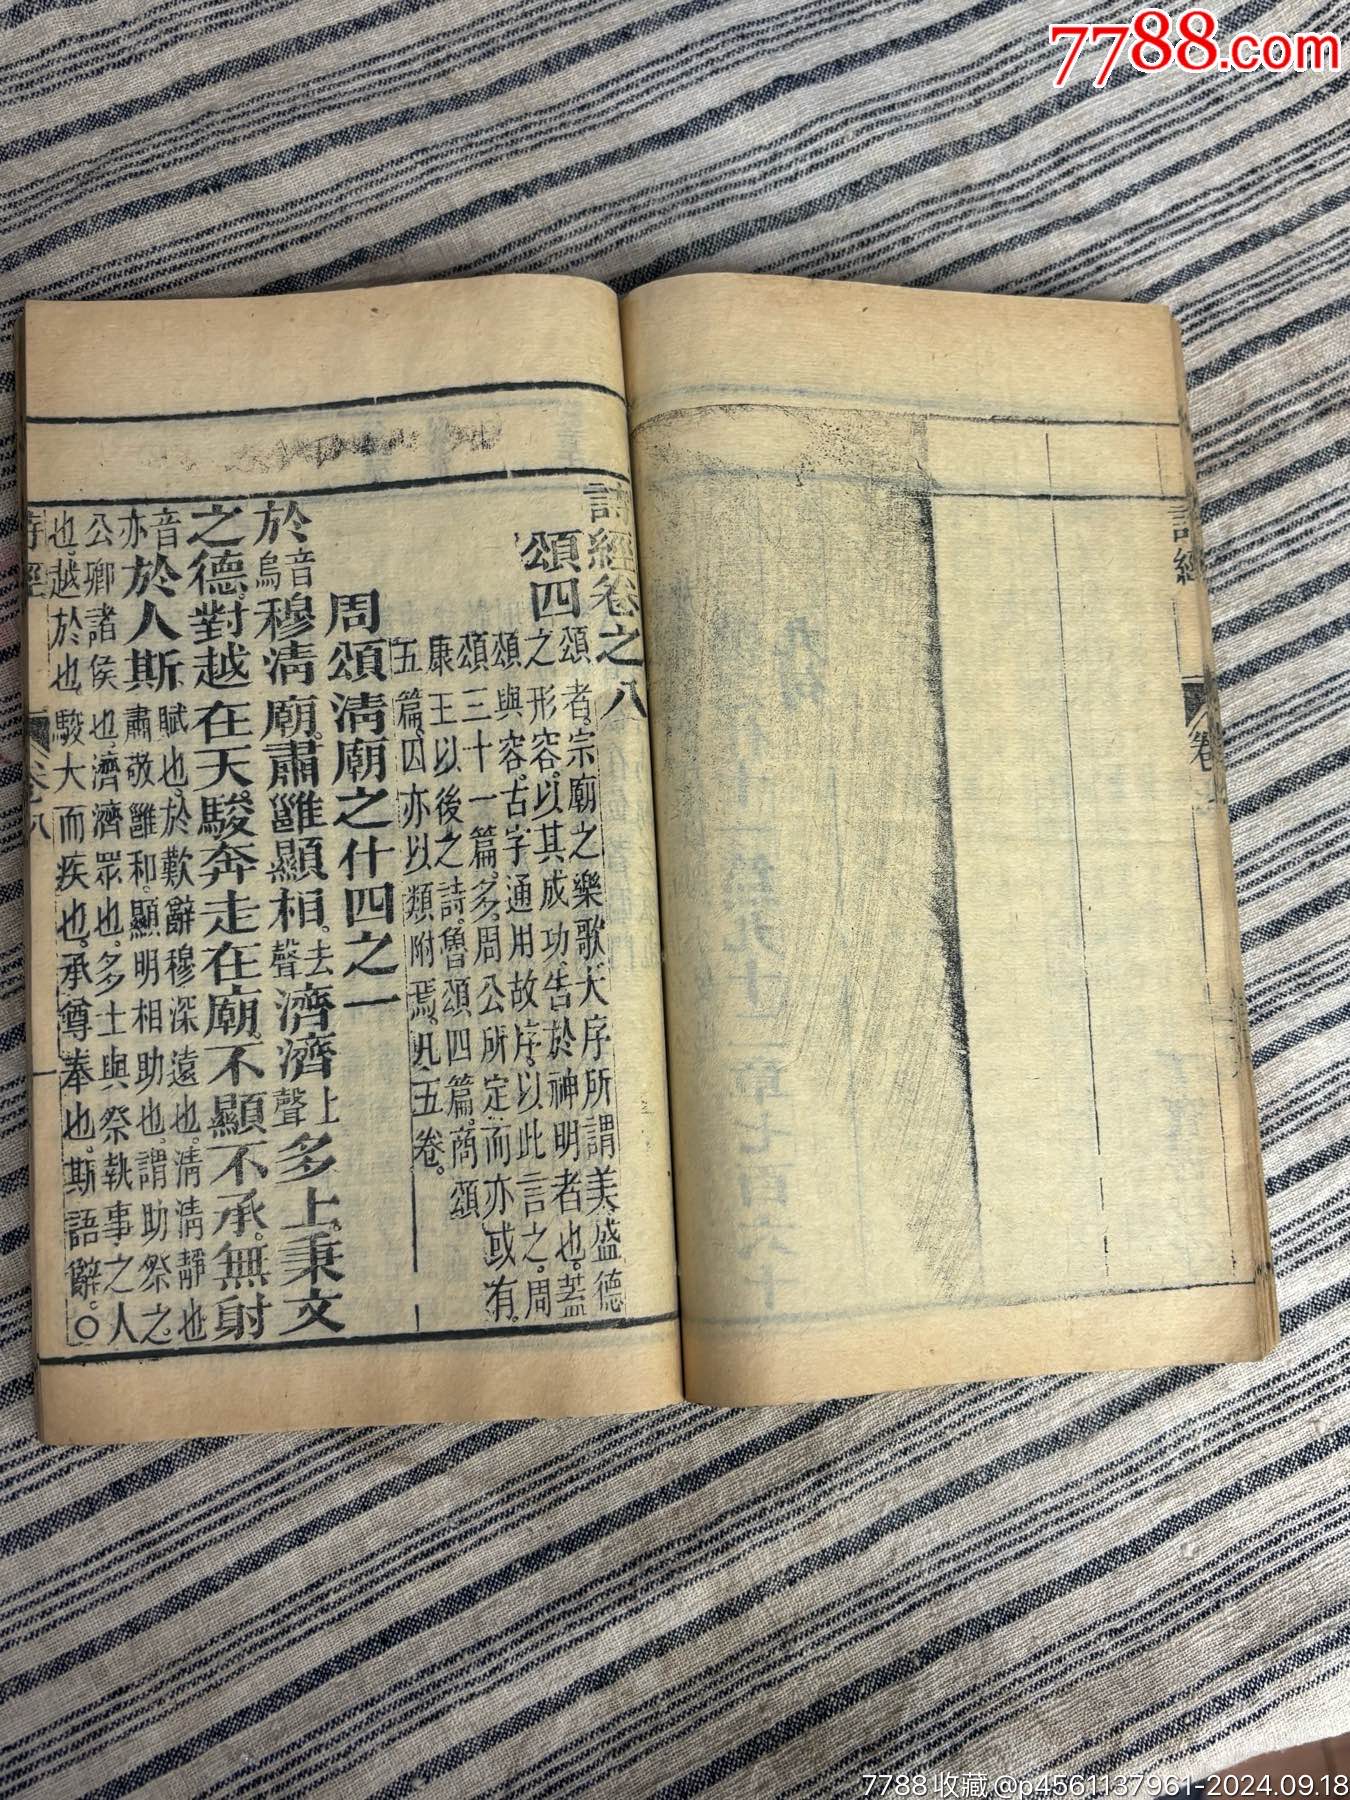 7788.com
詩經
卷
詩經卷之八
頌四
頌者宗廟之樂歌大序所謂美盛德
之形容以其成功告於神明者也蓋
頌與容古字通用故序以此言之周
頌三十一篇多周公所定而亦或有
康王以後之詩魯頌四篇商頌
五篇因亦以類附焉凡五卷
周頌清廟之什四之一
於音烏穆清廟肅雝顯相去聲濟濟上聲多士秉文
之德對越在天駿奔走在廟不顯不承無射
音亦於人斯
賦也於歎辭穆深遠也清清靜也
肅敬雝和顯明相助也謂助祭之
公卿諸侯也濟濟眾也多士與祭執事之人
也越於也駿大而疾也承尊奉也斯語辭○
詩經
卷八
一
7788收藏@p4561137961-2024.09.18